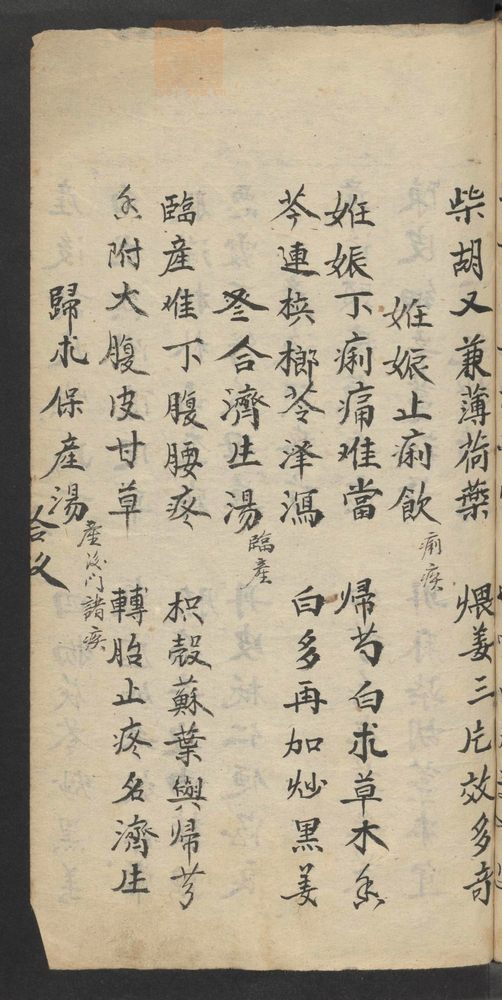 柴胡又兼薄荷葉　煨姜三片效多奇
姙娠止痢飲　痢疾
姙娠下痢痛难當　帰芍白朮草木香
芩連梹榔苓澤瀉　白多再加炒黑姜
合濟生湯　臨產
臨產难下腹腰疼　枳殼蘇葉與帰芎
香附大腹皮甘草　轉胎止疼名濟生
產後门諸疾
歸朮保產湯